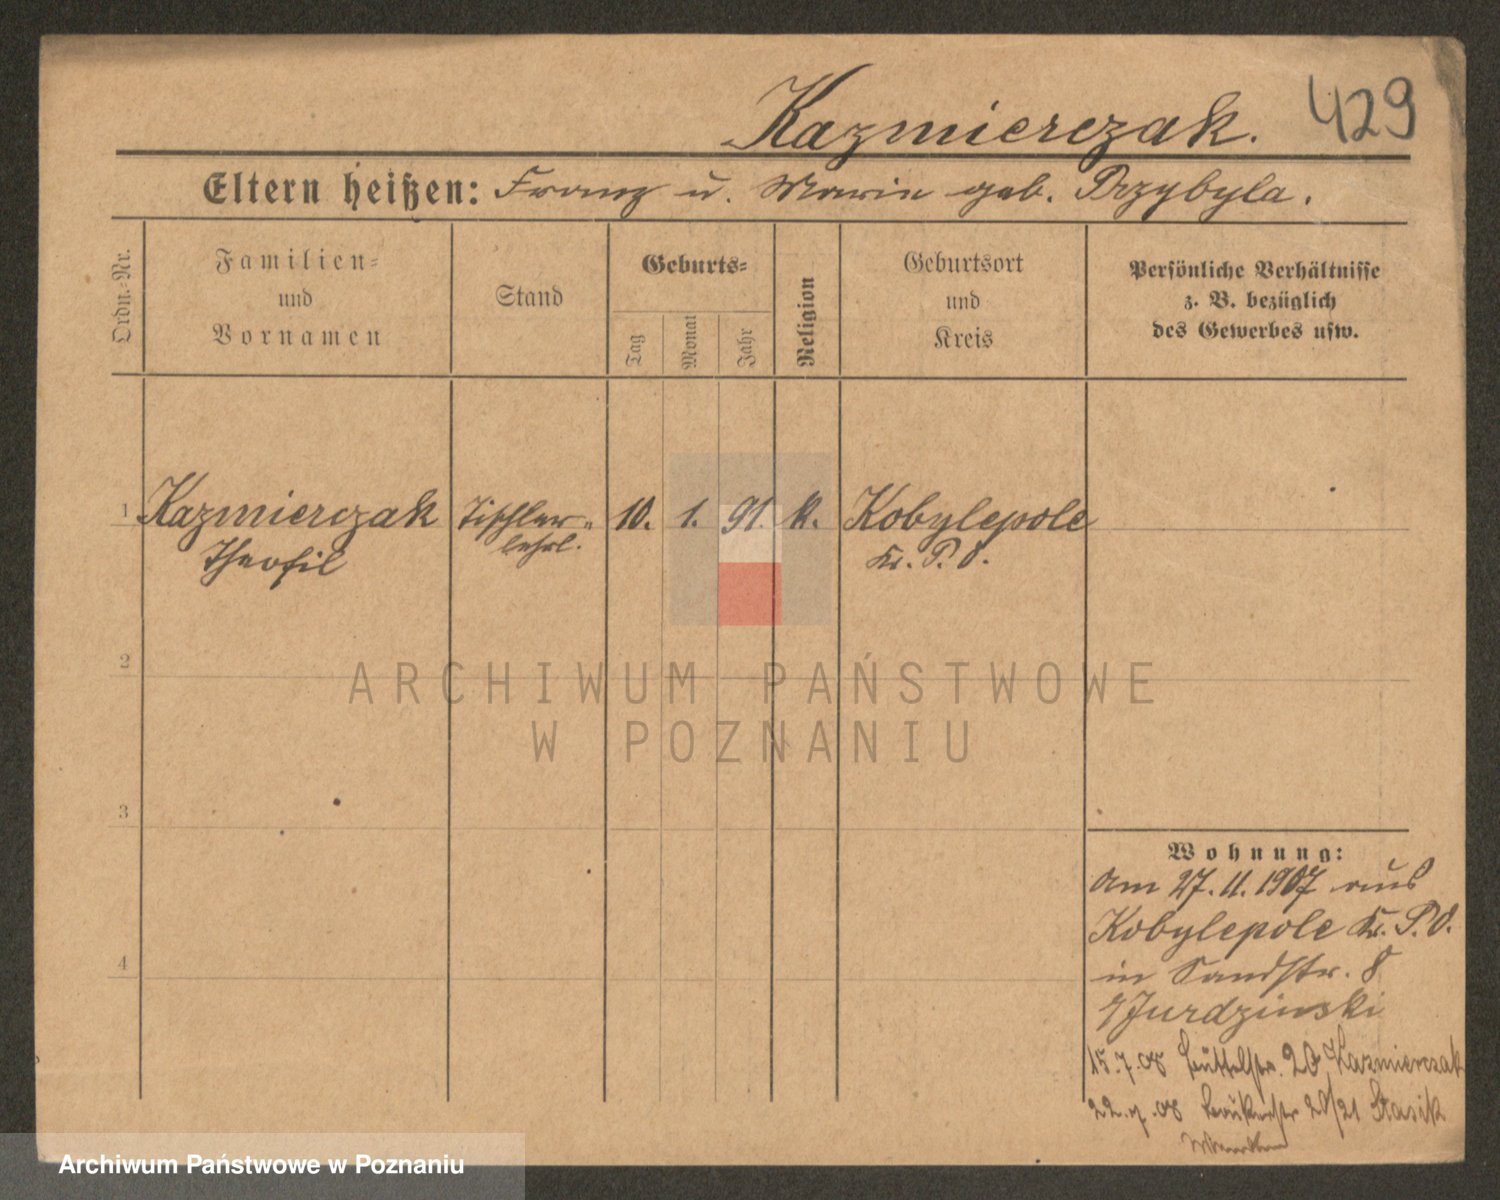 Kazmierczak. 429
Eltern heißen: Franz u. Marie geb. Przybyla.
Ordn.-Nr.
Familien-
und
Vornamen
Stand
Geburts-
Tag
Monat
Jahr
Religion
Geburtsort
und
Kreis
Persönliche Verhältnisse
z. B. bezüglich
des Gewerbes usw.
1 Kazmierczak Tischler- 10. 1. 91. k. Kobylepole
Theofil lehrl. Kr. P. O.
2
ARCHIWUM PAŃSTWOWE
W POZNANIU
3
4
Wohnung:
Am 27. 11. 1907 aus
Kobylepole Kr. P. O.
in Sandstr. 8
Jurdzinski
15.7.08 Büttelstr. 20 Kazmierczak
22.9.08 20/21 Stasik
Archiwum Państwowe w Poznaniu